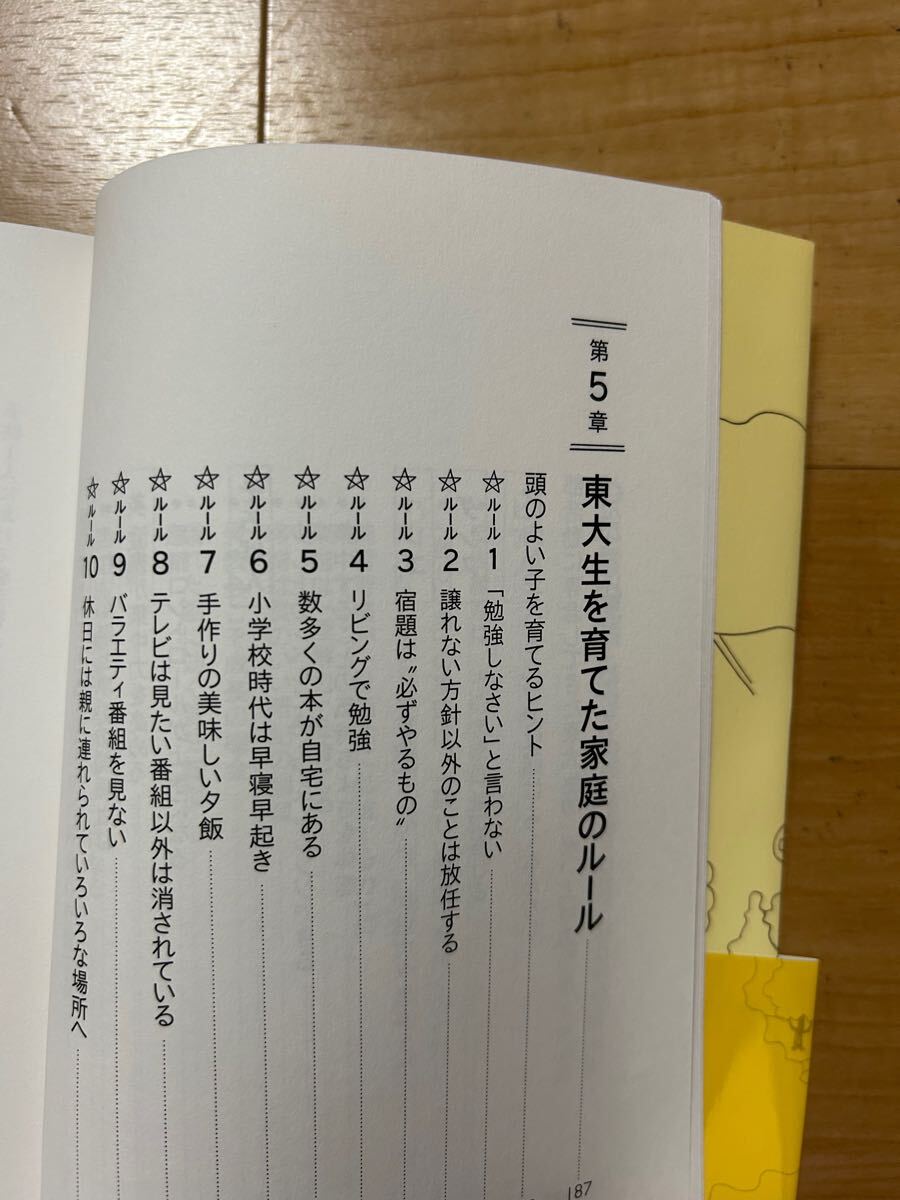 第5章 東大生を育てた家庭のルール 187
頭のよい子を育てるヒント
☆ルール1 「勉強しなさい」と言わない
☆ルール2 譲れない方針以外のことは放任する
☆ルール3 宿題は〝必ずやるもの〟
☆ルール4 リビングで勉強
☆ルール5 数多くの本が自宅にある
☆ルール6 小学校時代は早寝早起き
☆ルール7 手作りの美味しい夕飯
☆ルール8 テレビは見たい番組以外は消されている
☆ルール9 バラエティ番組を見ない
☆ルール10 休日には親に連れられていろいろな場所へ